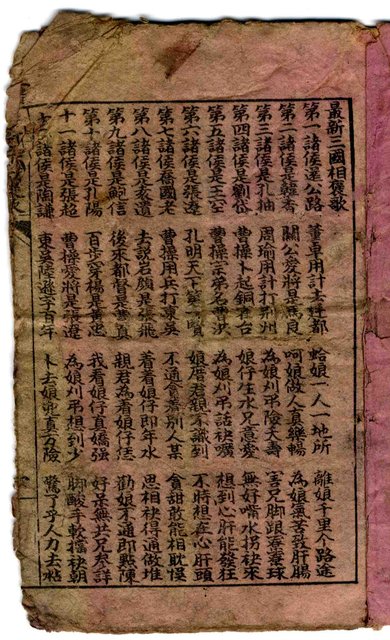 最新三國相褒歌
第一諸侯遠公路 董卓用計去迁都 蛤娘一人一地所 離娘千里个路途
第二諸侯是韓香 關公愛將是馬良 呵娘做人真樂暢 為娘氣苦發肝腸
第三諸侯是孔抽 周瑜用計打荊州 為娘刈吊險夭壽 害兄脚浪球
第四諸侯是劉岱 曹操卜起銅雀台 娘仔生水兄意愛 無好嘴水拐袂來
第五諸侯是王空 曹操宗弟名曹洪 為娘刈吊話袂 想到心肝能發狂
第六諸侯是張遼 孔明天下第一賢 娘厝君親不識到 不時想在心肝頭
第七諸侯喬國老 曹操用兵打東吳 不通食着別人某 食甜敢能相耽悮
第八諸侯是袁遺 去説石顏是張飛 看着娘仔即年水 思相袂得通做堆
第九諸侯是鮑信 後來都督是曹真 親君為着娘仔恁 勸娘不通即點陳
第十諸侯是孔揚 百步穿楊是黃忠 我看娘仔真嬌強 好是無共兄參詳
十一諸侯是張超 曹操愛將是張遼 為娘刈吊想到少 脚酸手軟擋袂朝
十二諸侯是陶謙 東吳陸遜字百年 卜去娘兜真万險 驚了乎人力去帖